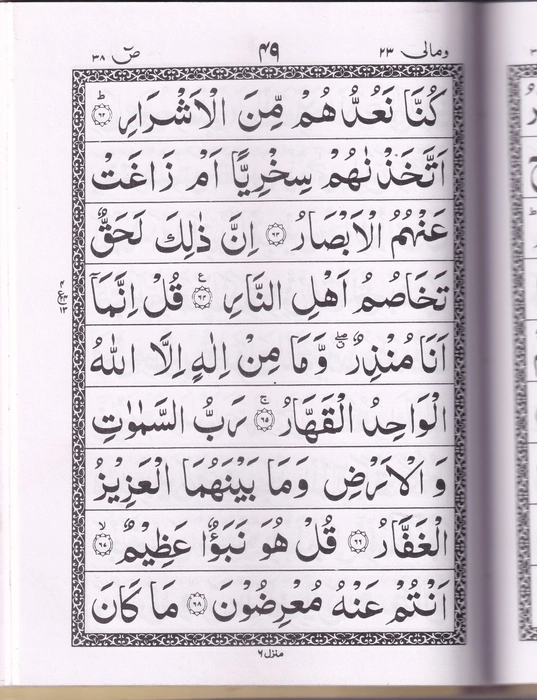 ومالی ۲۳ ۴۹ صٓ ۳۸
كُنَّا نَعُدُّهُمْ مِّنَ الْاَشْرَارِ ؕ ﴿۶۲﴾
اَتَّخَذْنٰهُمْ سِخْرِيًّا اَمْ زَاغَتْ
عَنْهُمُ الْاَبْصَارُ ﴿۶۳﴾ اِنَّ ذٰلِكَ لَحَقٌّ
تَخَاصُمُ اَهْلِ النَّارِ ﴿۶۴﴾ ع قُلْ اِنَّمَاۤ
اَنَا مُنْذِرٌ ۖ وَّمَا مِنْ اِلٰهٍ اِلَّا اللّٰهُ
الْوَاحِدُ الْقَهَّارُ ۚ ﴿۶۵﴾ رَبُّ السَّمٰوٰتِ
وَالْاَرْضِ وَمَا بَيْنَهُمَا الْعَزِيْزُ
الْغَفَّارُ ﴿۶۶﴾ قُلْ هُوَ نَبَؤٌا عَظِيْمٌ ۙ ﴿۶۷﴾
اَنْتُمْ عَنْهُ مُعْرِضُوْنَ ﴿۶۸﴾ مَا كَانَ
منزل ۶